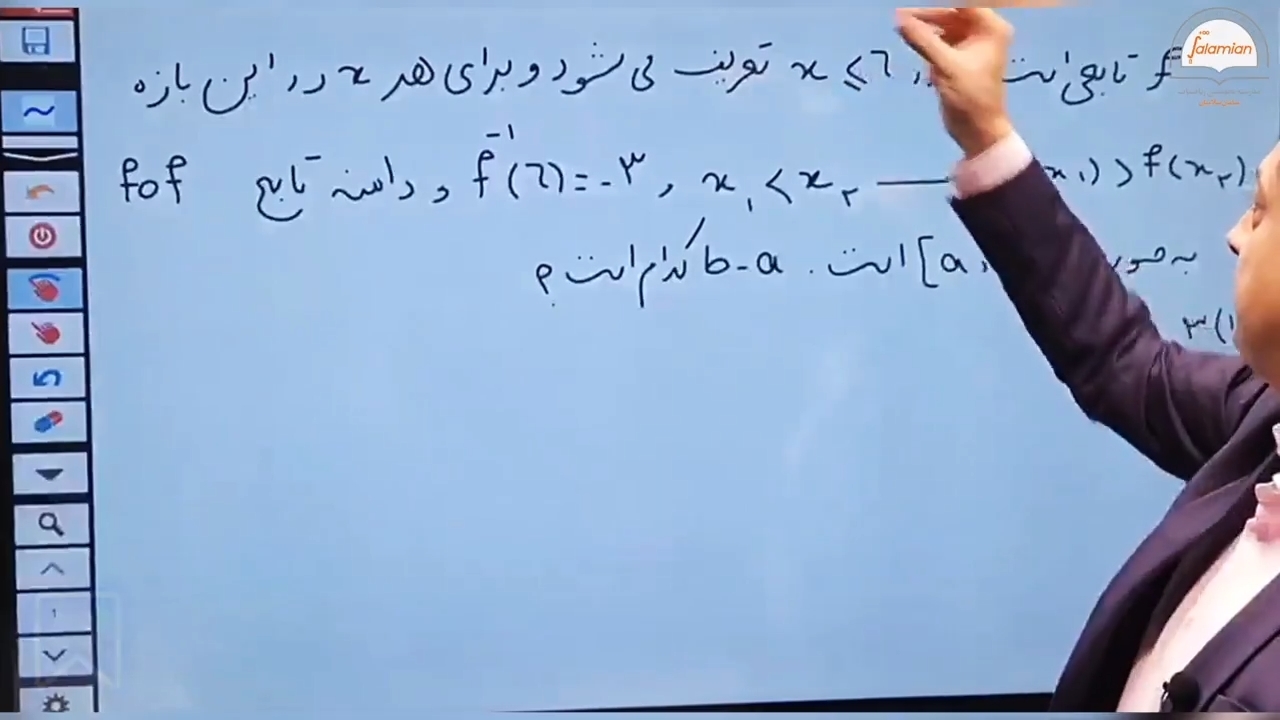 f تابعی است در x ≤ 6 تعریف می شود و برای هر x در این بازه
f(x₂) < x₁) —— x₁ < x₂ , f⁻¹(6) = -۳ و دامنه تابع fof
به صور [a, است . b-a کدام است ؟
۳ (۱
salamian
۱